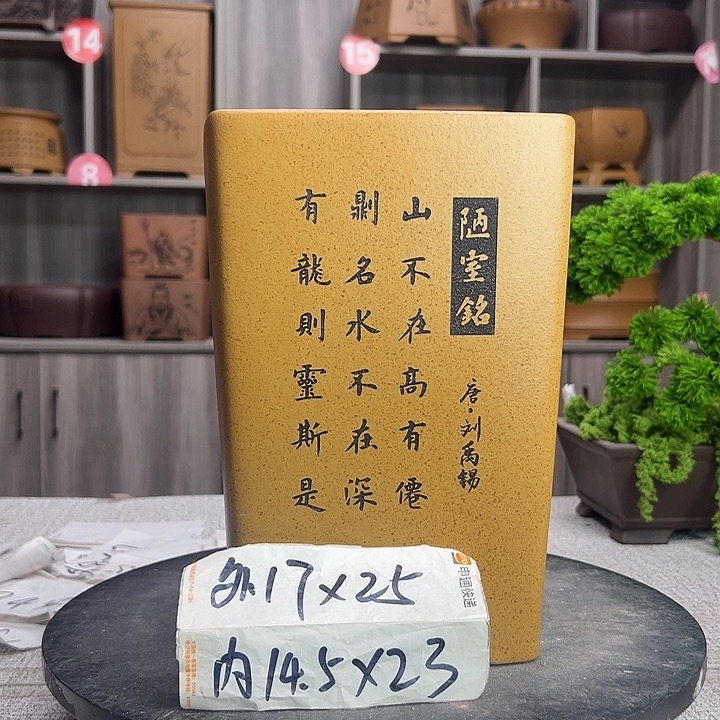 陋室銘
唐·刘禹錫
山不在高有僊
鼎名水不在深
有龍則靈斯是
外17×25
内14.5×23
申通快递
14
15
8